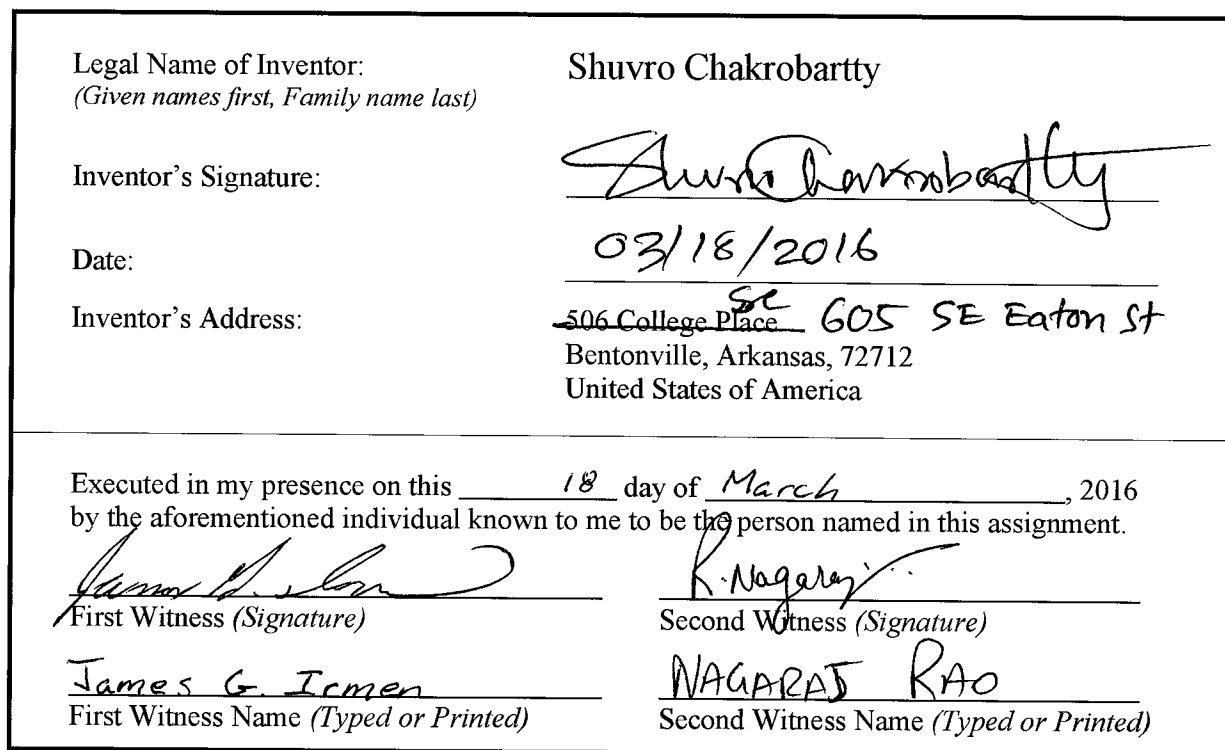 Legal Name of Inventor: Shuvro Chakrobartty
(Given names first, Family name last)
Inventor's Signature: Shuvro Chakrobartty
Date: 03/18/2016
SC
Inventor's Address: 506 College Place 605 SE Eaton St
Bentonville, Arkansas, 72712
United States of America
Executed in my presence on this 18 day of March, 2016
by the aforementioned individual known to me to be the person named in this assignment.
R. Nagaraj
First Witness (Signature) Second Witness (Signature)
James G. Irmen NAGARAJ RAO
First Witness Name (Typed or Printed) Second Witness Name (Typed or Printed)